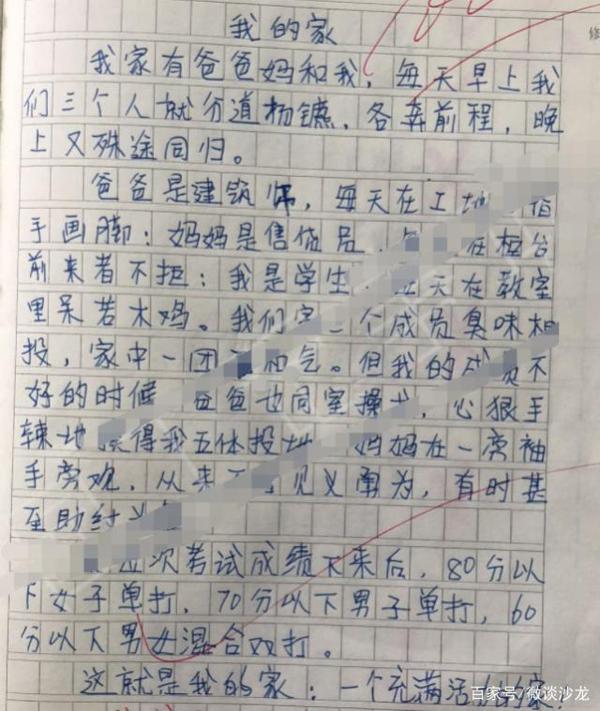 我的家
我家有爸爸妈和我，每天早上我
们三个人就分道扬镳，各奔前程，晚
上又殊途同归。
爸爸是建筑师，每天在工地 指
手画脚；妈妈是售货员， 在柜台
前来者不拒；我是学生 每天在教室
里呆若木鸡。我们家三个成员臭味相
投，家中一团 和气。但我的成 不
好的时候 爸爸也同室操 ，心狠手
辣地 得我五体投地 妈妈在一旁袖
手旁观，从来 见义勇为，有时甚
至助纣
次考试成绩下来后，80分以
下女子单打，70分以下男子单打，60
分以下男女混合双打。
这就是我的家：一个充满活 的家！
百家号/微谈沙龙